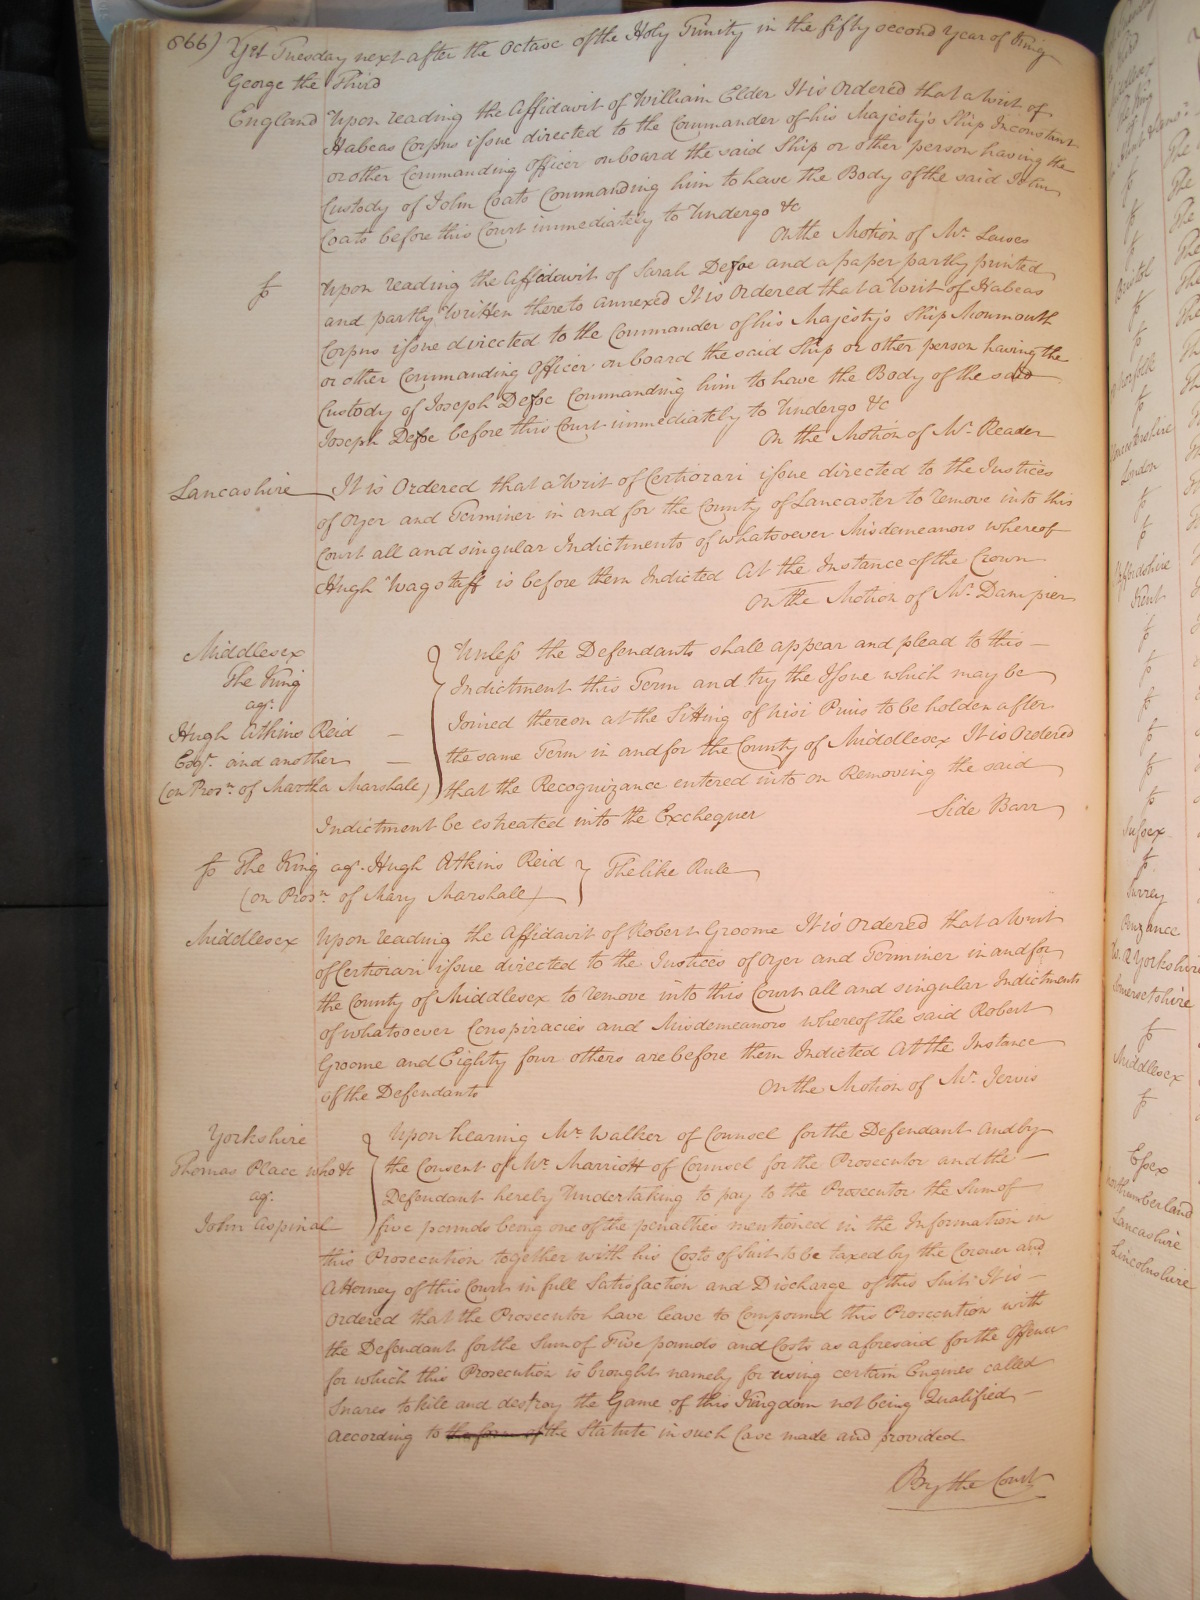 866) Yet Tuesday next after the Octave of the Holy Trinity in the fifty second Year of King
George the Third
England Upon reading the Affidavit of William Elder It is Ordered that a Writ of
Habeas Corpus issue directed to the Commander of his Majesty's Ship Inconstant
or other Commanding Officer on board the said Ship or other person having the
Custody of John Coats Commanding him to have the Body of the said John
Coats before this Court immediately to Undergo &c
On the Motion of Mr. Lawes
Upon reading the Affidavit of Sarah Defoe and a paper partly printed
and partly Written thereto annexed It is Ordered that a Writ of Habeas
Corpus issue directed to the Commander of his Majesty's Ship Monmouth
or other Commanding Officer on board the said Ship or other person having the
Custody of Joseph Defoe Commanding him to have the Body of the said
Joseph Defoe before this Court immediately to Undergo &c
On the Motion of Mr. Reader
Lancashire It is Ordered that a Writ of Certiorari issue directed to the Justices
of Oyer and Terminer in and for the County of Lancaster to remove into this
Court all and singular Indictments of whatsoever Misdemeanors whereof
Hugh Wagstaff is before them Indicted At the Instance of the Crown
On the Motion of Mr. Dampier
Middlesex
The King
agt.
Hugh Atkins Reid
Esqr. and another
(on Prosn. of Martha Marshall)
Unless the Defendants shall appear and plead to this
Indictment this Term and try the Issue which may be
Joined thereon at the Sitting of Nisi Prius to be holden after
the same Term in and for the County of Middlesex It is Ordered
that the Recognizance entered into on Removing the said
Indictment be estreated into the Exchequer
Side Barr
The King agt. Hugh Atkins Reid
(on Prosn. of Mary Marshall)
The like Rule
Middlesex Upon reading the Affidavit of Robert Groome It is Ordered that a Writ
of Certiorari issue directed to the Justices of Oyer and Terminer in and for
the County of Middlesex to remove into this Court all and singular Indictments
of whatsoever Conspiracies and Misdemeanors whereof the said Robert
Groome and Eighty four others are before them Indicted At the Instance
of the Defendants
On the Motion of Mr. Jervis
Yorkshire
Thomas Place who &c
agt.
John Aspinal
Upon hearing Mr. Walker of Counsel for the Defendant and by
the Consent of Mr. Marriott of Counsel for the Prosecutor and the
Defendant hereby Undertaking to pay to the Prosecutor the Sum of
five pounds being one of the penalties mentioned in the Information in
this Prosecution together with his Costs of Suit to be taxed by the Coroner and
Attorney of this Court in full Satisfaction and Discharge of this Suit It is
Ordered that the Prosecutor have leave to Compound this Prosecution with
the Defendant for the Sum of Five pounds and Costs as aforesaid for the Offence
for which this Prosecution is brought namely for using certain Engines called
Snares to kill and destroy the Game of this Kingdom not being Qualified
According to the form of the Statute in such Case made and provided
By the Court
Bristol
Norfolk
London
Kent
Sussex
Surrey
Penzance
Somersetshire
Middlesex
Essex
Northumberland
Lancashire
Lincolnshire